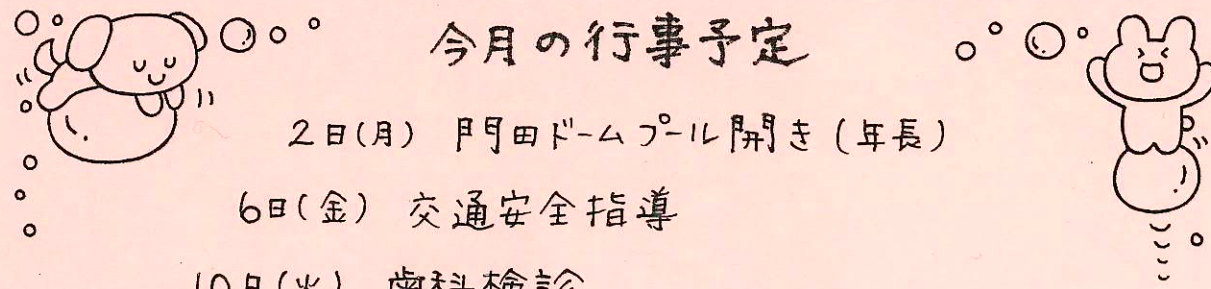 今月の行事予定
2日(月) 門田ドームプール開き(年長)
6日(金) 交通安全指導
10日(火) 歯科検診